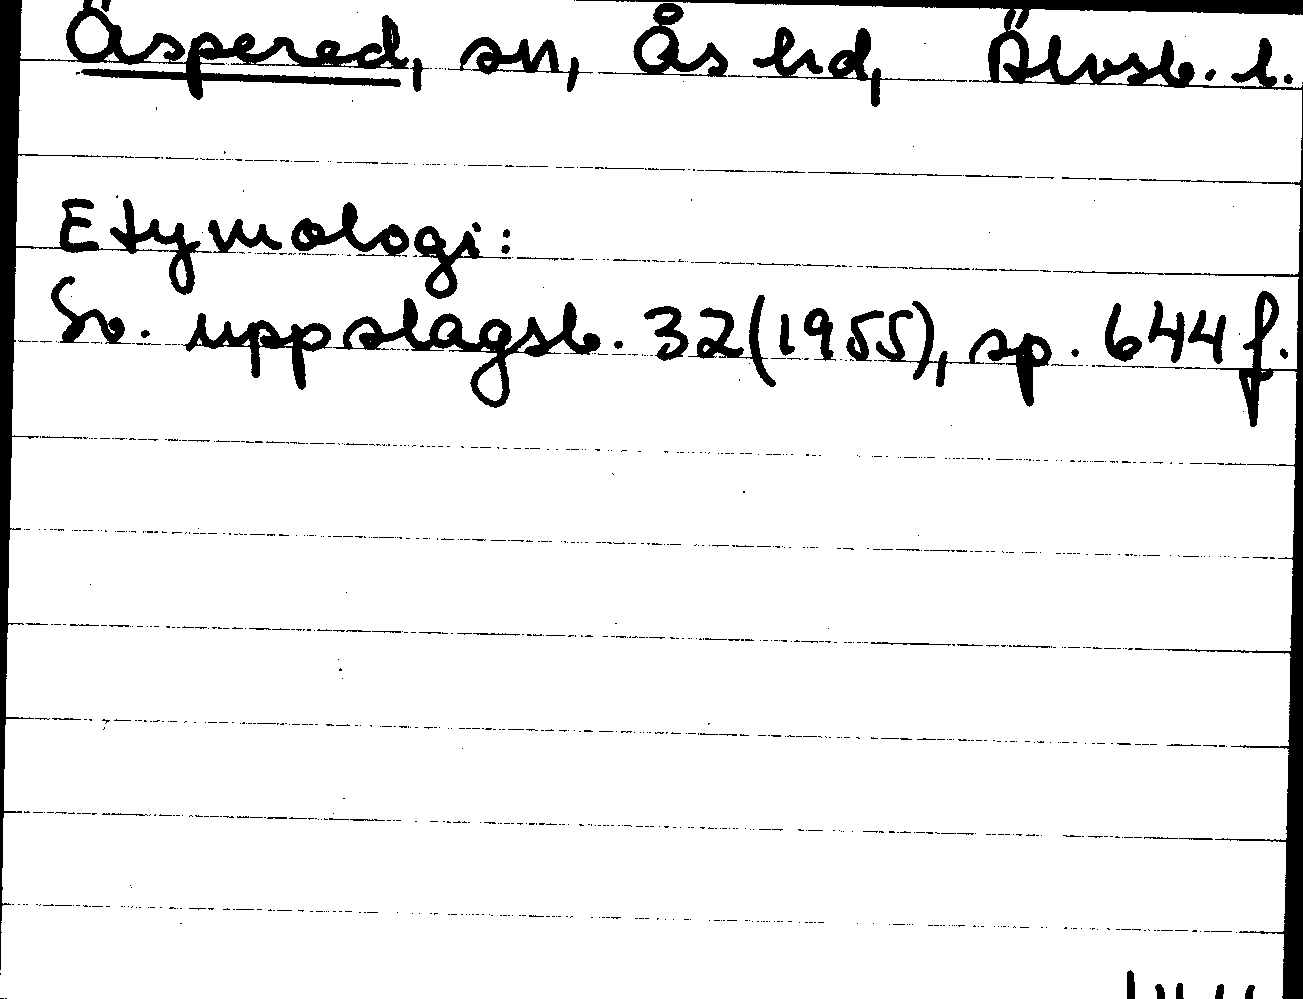 Äspered, sn, Ås hd, Älvsb. l.
Etymologi:
Sv. uppslagsb. 32(1955), sp. 644 f.